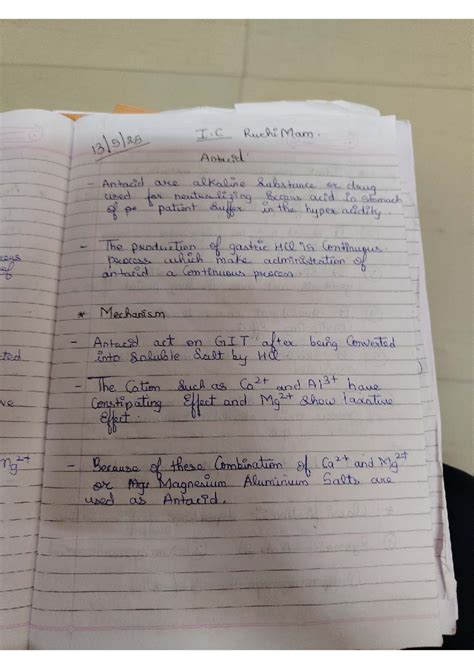 13/5/25
I.C Ruchi Mam.
Antacid
- Antacid are alkaline Substance or drug
used for neutralizing Excess acid in stomach
of pa patient Suffer in the hyper acidity
- The production of gastric HCl is Continuous
process which make administration of
antacid a Continuous process.
* Mechanism
- Antacid act on GIT after being Converted
into Soluble Salt by HCl.
- The Cation Such as Ca2+ and Al3+ have
Constipating Effect and Mg2+ Show laxative
Effect.
- Because of these Combination of Ca2+ and Mg2+
or Mg Magnesium Aluminium Salts are
used as Antacid.
of
ted
ve
mg2+